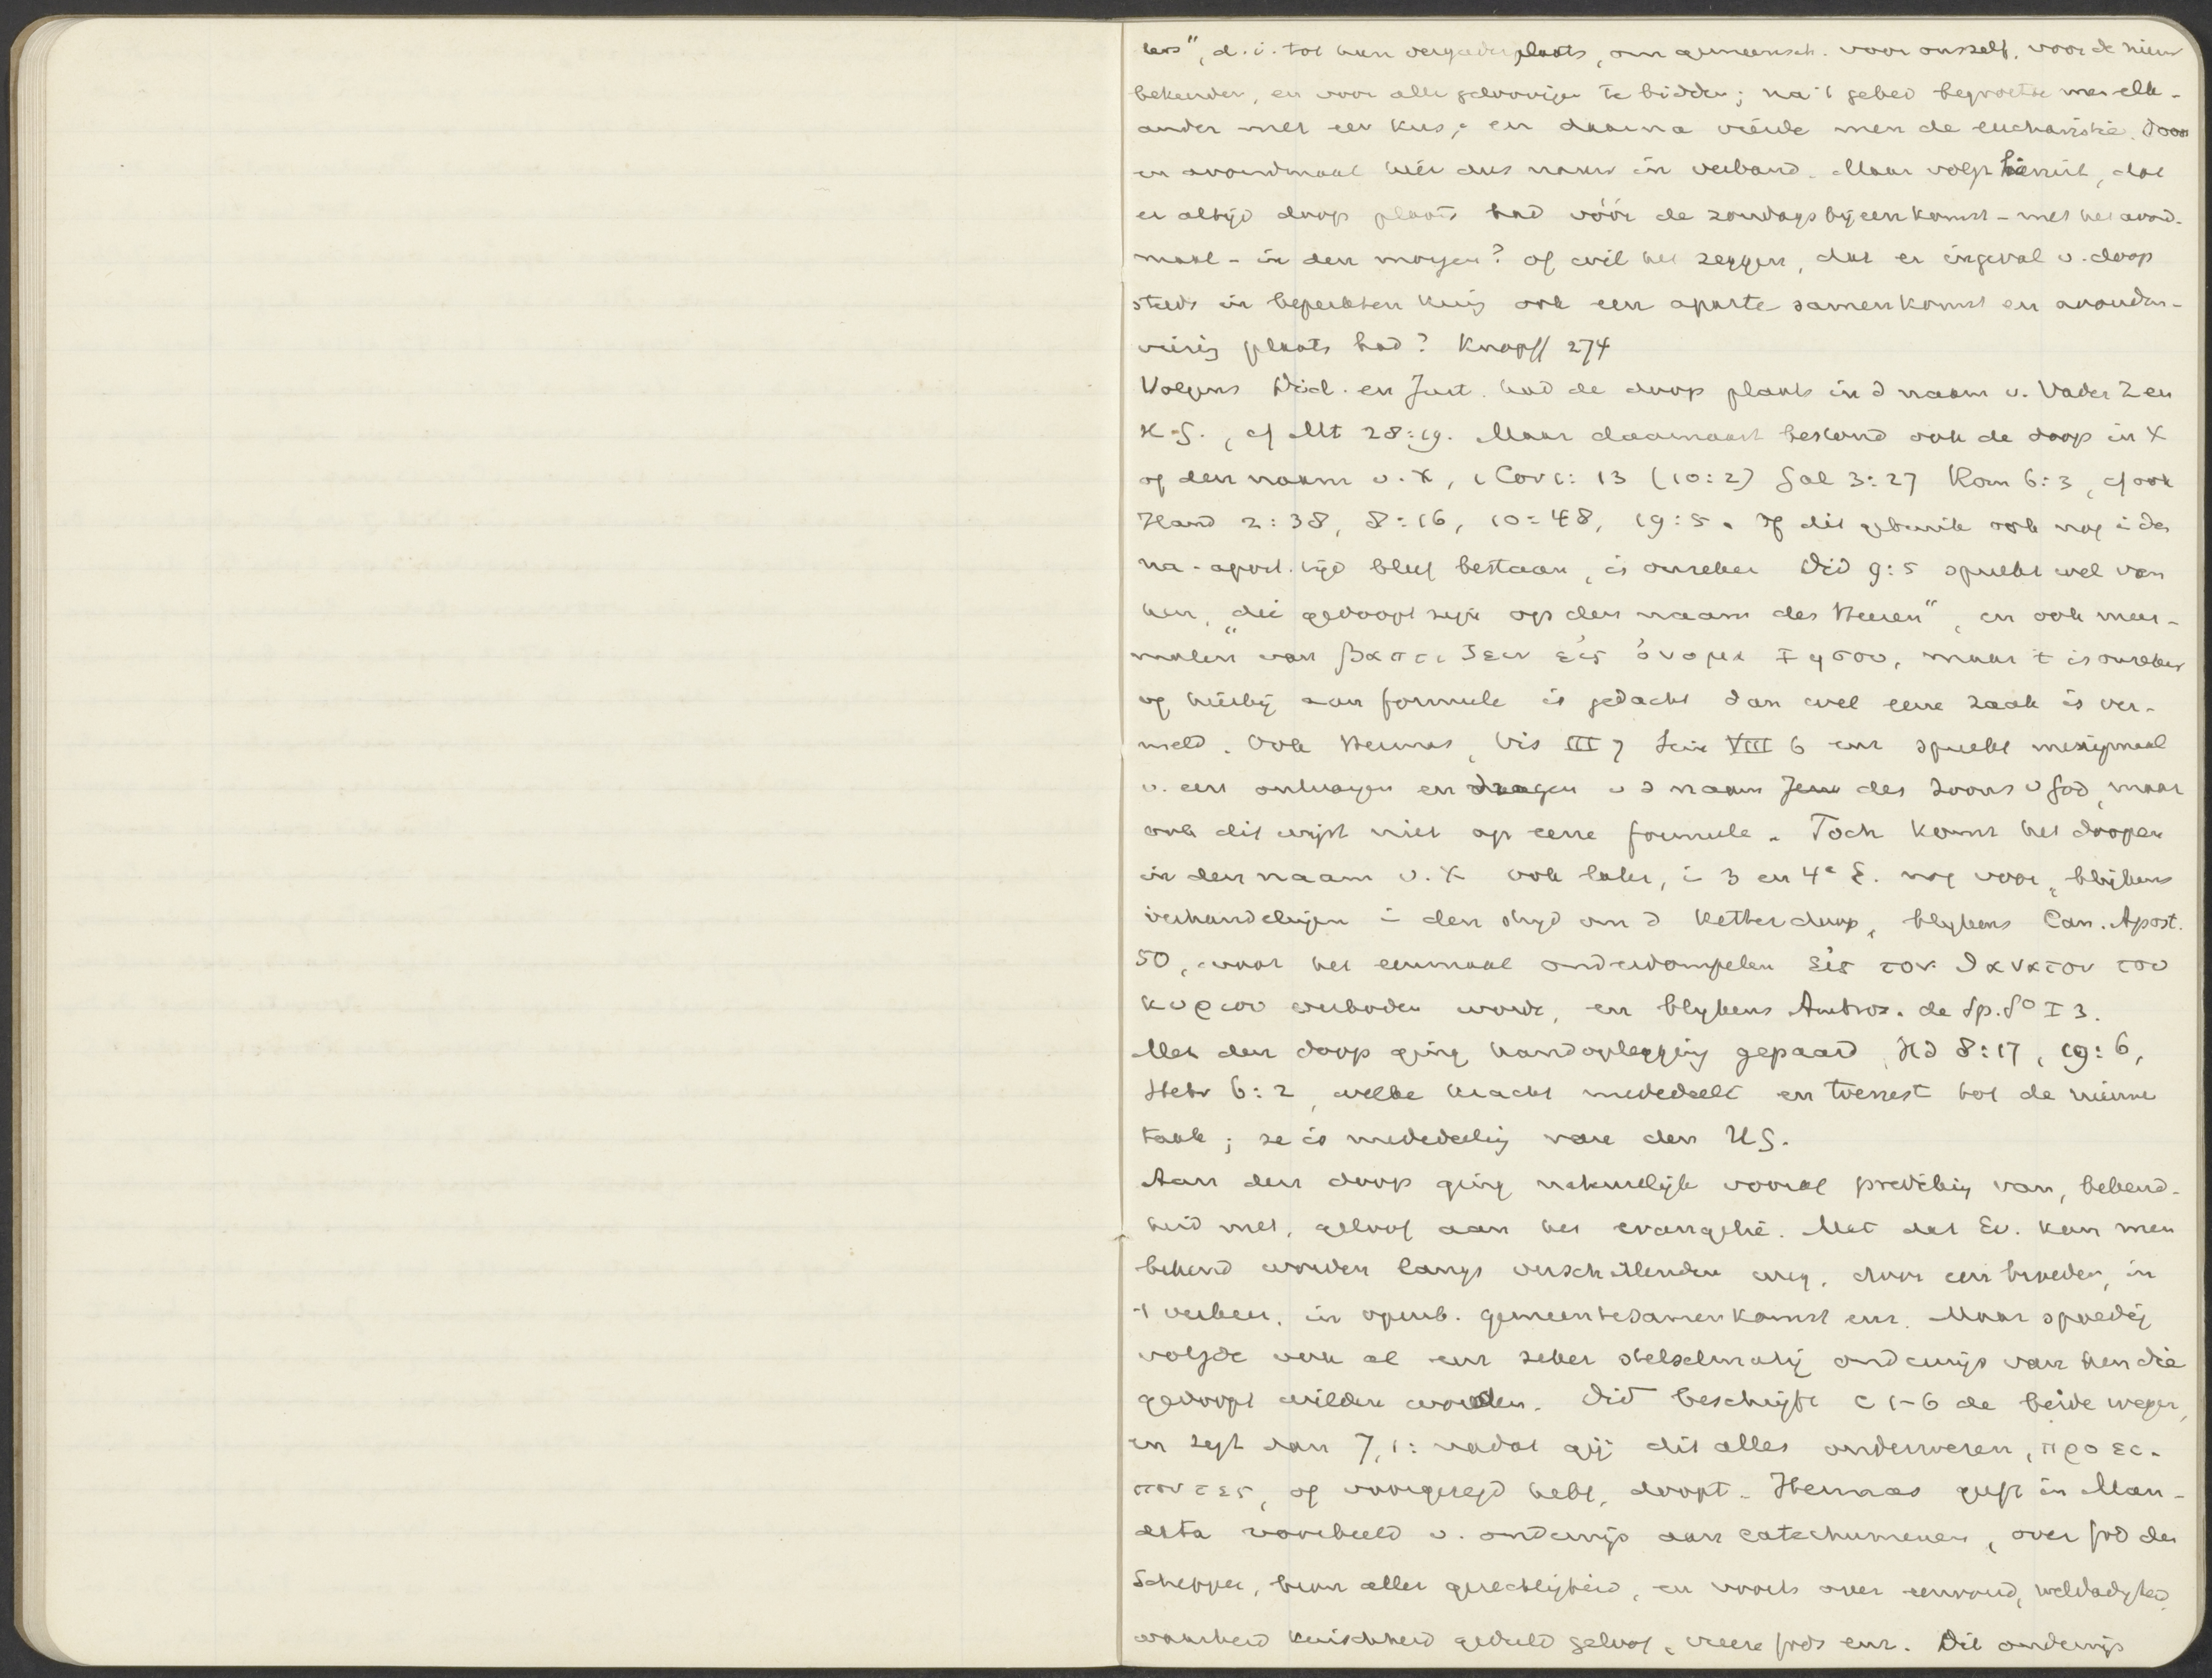 ders", d.i. tot hun vergaderplaats, om gemeensch. voor onszelf, voor de nieuw
bekeerden, en voor alle geloovigen te bidden; na 't gebed begroette men elk-
ander met een kus, en daarna vierde men de eucharistie. Doop
en avondmaal hier dus nauw in verband. Maar volgt hieruit, dat
er altijd doop plaats had vóór de zondagsbijeenkomst - met het avond-
maal - in den morgen? of wil het zeggen, dat er ingeval v. doop
steeds in beperkten kring ook een aparte samenkomst en avondm-
viering plaats had? Knopff 274
Volgens Did. en Just. had de doop plaats in d naam v. Vader Z en
H.G., cf Mt 28:19. Maar daarnaast bestond ook de doop in X
of den naam v. X, 1 Cor 1: 13 (10:2) Gal 3:27 Rom 6:3, cf ook
Hand 2:38, 8:16, 10:48, 19:5. Of dit gebruik ook nog i der
na-apost. tijd bleef bestaan, is onzeker. Did 9:5 spreekt wel van
hen, "die gedoopt zijn op den naam des Heeren", en ook meer-
malen van βαπτιζειν εἰς ὀνομα Ιησου, maar 't is onzeker
of hierbij aan formule is gedacht dan wel eene zaak is ver-
meld. Ook Hermas, Vis III 7 Sim VIII 6 enz spreekt menigmaal
v. een ontvangen en dragen v d naam Jezus des Zoons v God, maar
ook dit wijst niet op eene formule. Toch komt het doopen
in den naam v. X ook later, i 3 en 4e E. nog voor, blijkens
verhandelingen i den strijd om d ketterdoop, blijkens Can. Apost.
50, waar het eenmaal onderdompelen εἰς τον θανατον του
κυριου verboden wordt, en blijkens Ambros. de Sp. So I 3.
Met den doop ging handoplegging gepaard, Hd 8:17, 19:6,
Hebr 6:2, welke kracht mededeelt en toerust tot de nieuwe
taak; ze is mededeeling van den HG.
Aan den doop ging natuurlijk vooraf prediking van, bekend-
heid met, geloof aan het evangelie. Met dat Ev. kon men
bekend worden langs verschillenden weg, door een broeder, in
't verkeer, in openb. gemeentesamenkomst enz. Maar spoedig
volgde ook al een zeker stelselmatig onderwijs van hen die
gedoopt wilden worden. Did beschrijft c 1-6 de beide wegen,
en zegt dan 7,1: nadat gij dit alles onderwezen, προει-
ποντες, of voorgezegd hebt, doopt. Hermas geeft in Man-
data voorbeeld v. onderwijs aan catechumenen, over God den
Schepper, bron aller gerechtigheid, en voorts over eenvoud, weldadigheid,
waarheid kuischheid geduld geloof, vreeze Gods enz. Dit onderwijs